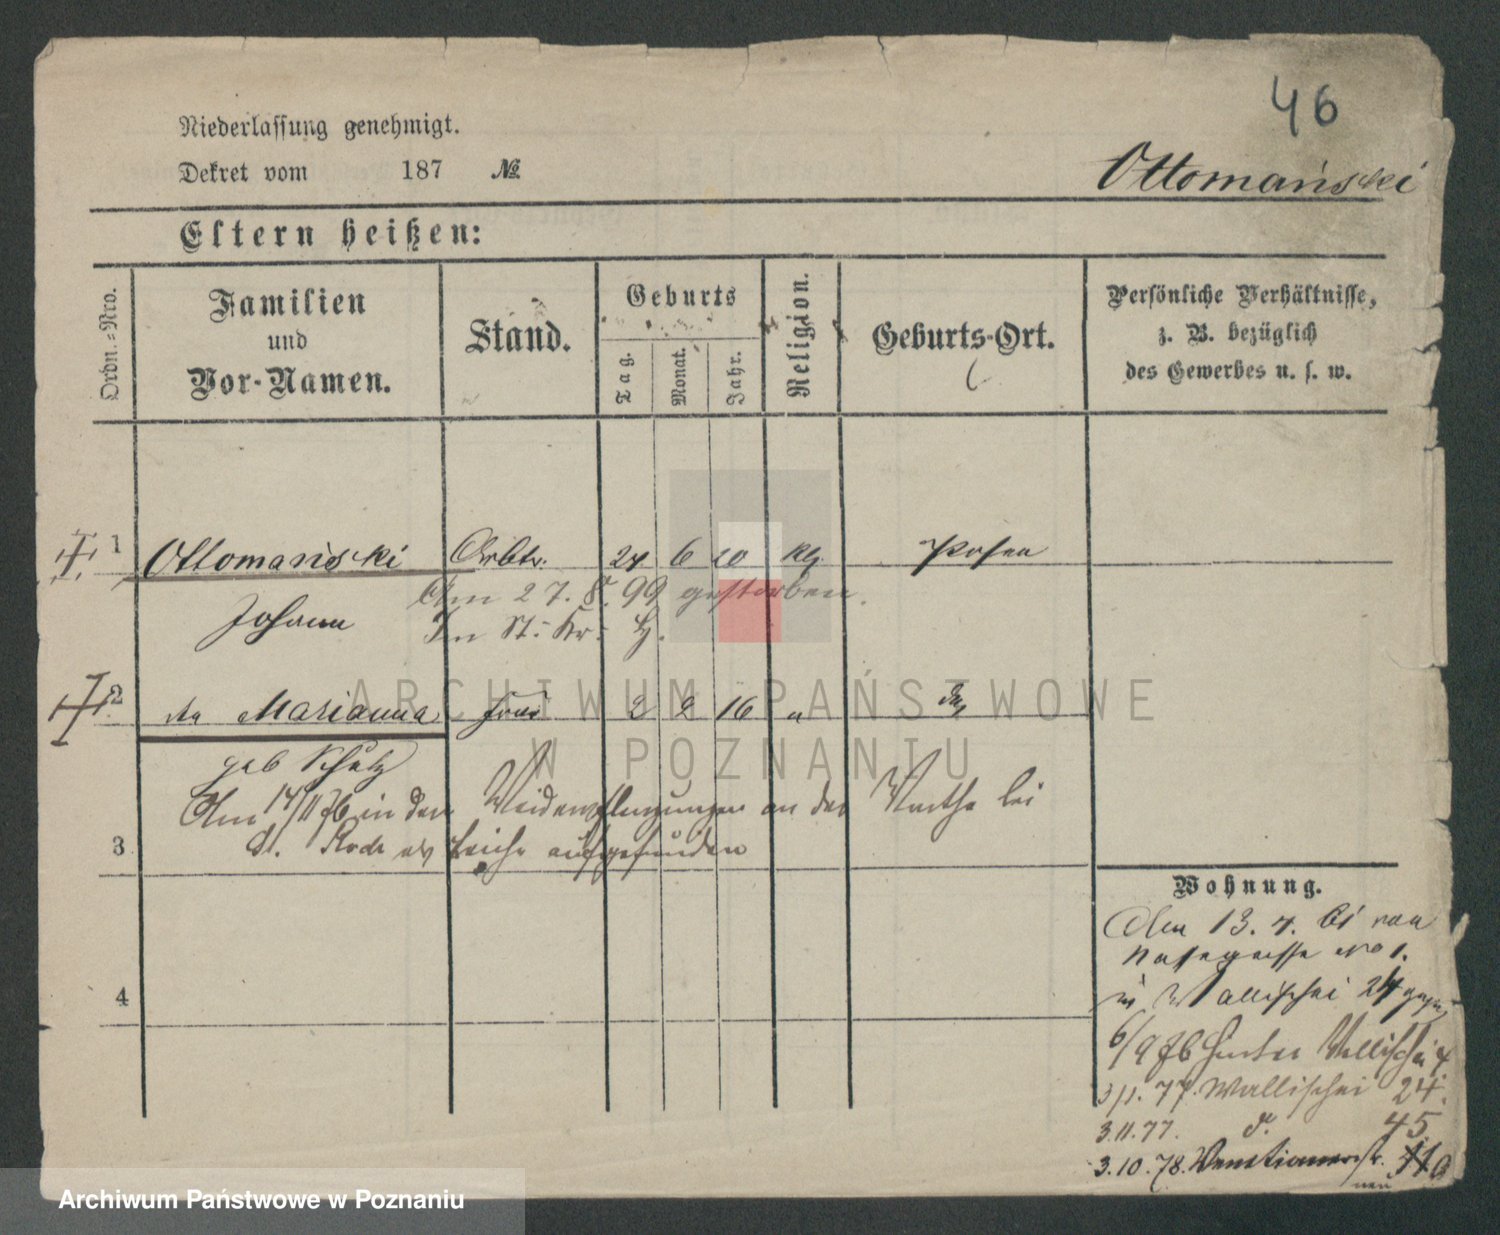 46
Niederlassung genehmigt.
Dekret vom 187 №
Ottomański
Eltern heißen:
Ordn.-Nro.
Familien
und
Vor-Namen.
Stand.
Geburts
Tag.
Monat.
Jahr.
Religion.
Geburts-Ort.
Persönliche Verhältnisse,
z. B. bezüglich
des Gewerbes u. s. w.
1 Ottomański Arbtr. 24 6 10 kth Posen
Johann
Am 27. 8. 99 gestorben.
Im St. Kr. H.
2 Marianna Frau 2 2 16
geb Schulz
Am 14/11 76 in den Weidenpflanzungen an der Warthe bei
3 St. Roch als Leiche aufgefunden
4
Wohnung.
Am 13. 4. von
No 1.
Wallischei 24
6/9 76 Hinter Wallischei
3/1. 77. Wallischei 24.
3.11.77. d. 45
3.10.78. Venetianerstr. 11a
neu
ARCHIWUM PAŃSTWOWE
W POZNANIU
Archiwum Państwowe w Poznaniu